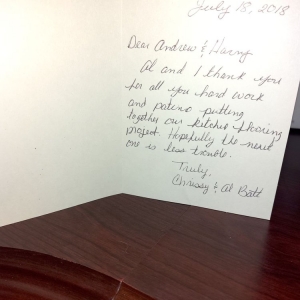 July 18, 2018
Dear Andrew & Harry
Al and I thank you
for all you hard work
and patiens putting
together our kitchen flooring
project. Hopefully the next
one is less trouble.
Truly,
Chrissy & Al